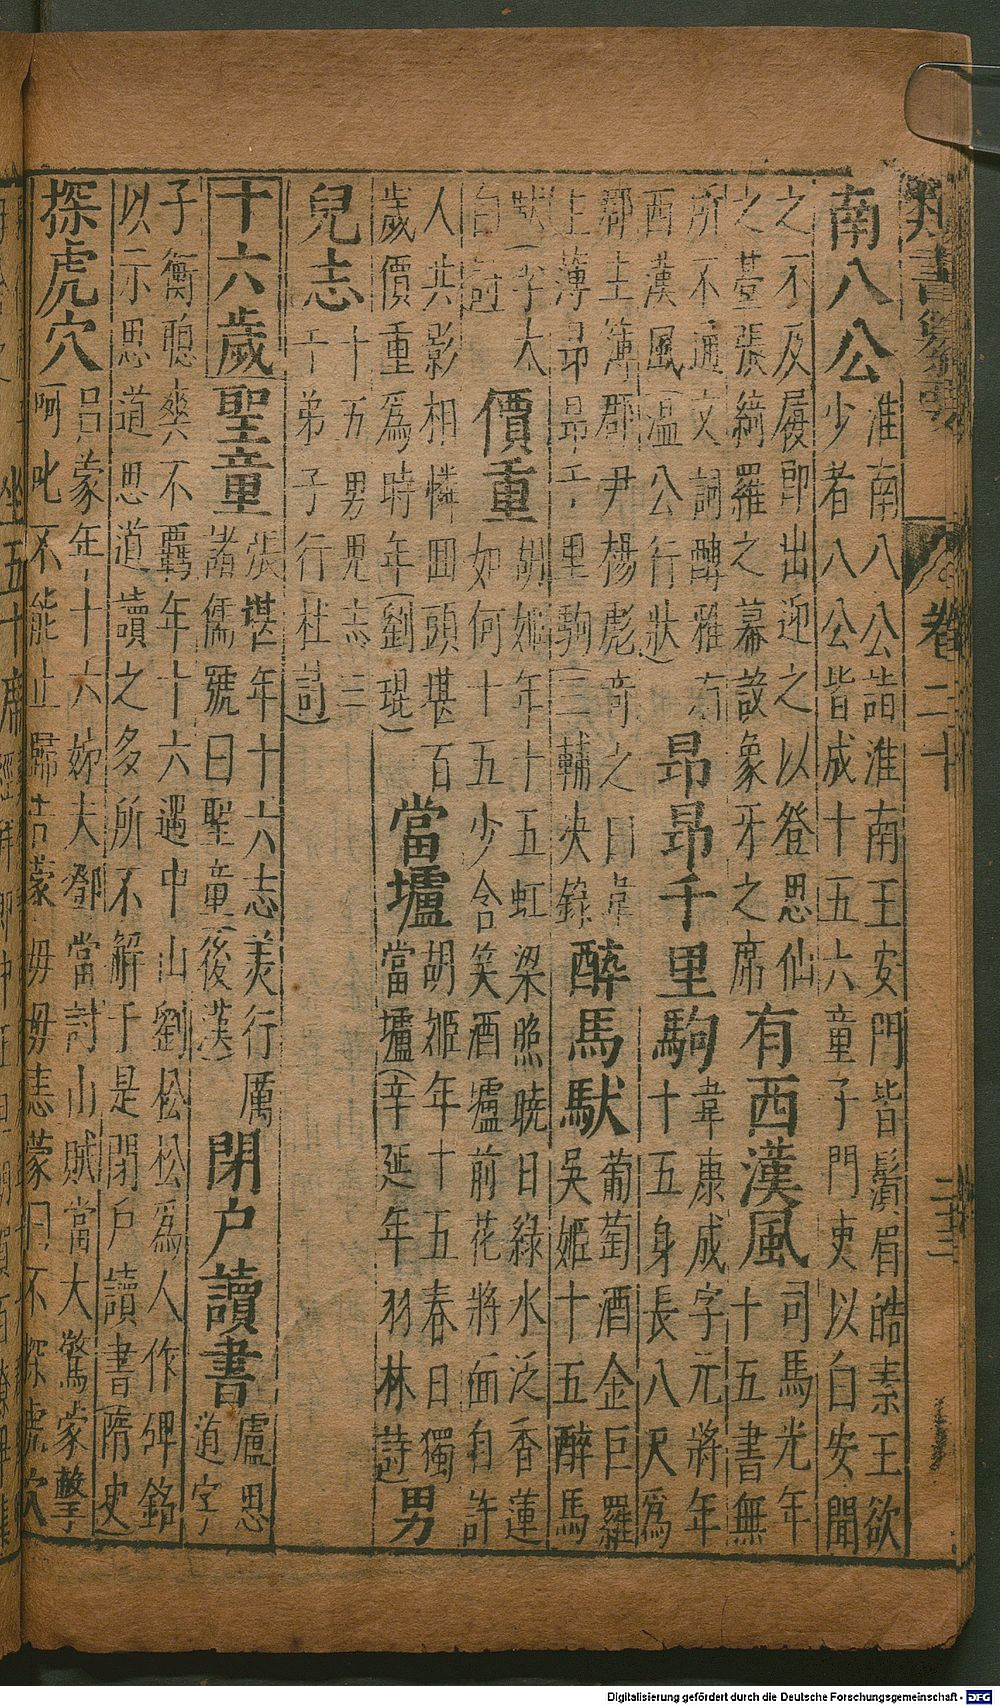 類書纂要 卷二十
南八公
淮南八公詣淮南王安門皆鬚眉皓素王欲
少者八公皆成十五六童子門吏以白安聞
之不及履即出迎之以登思仙
之臺張綺羅之幕設象牙之席
有西漢風
司馬光年
十五書無
所不通文詞醇雅有
西漢風(溫公行狀)
昂昂千里駒
韋康成字元將年
十五身長八尺為
郡主簿郡尹楊彪奇之曰韋
主簿昂昂千里駒(三輔決錄
醉馬馱
葡萄酒金巨羅
吳姬十五醉馬
馱(李太
白詩
價重
胡姬年十五虹梁照曉日綠水泛香蓮
如何十五少含笑酒壚前花將面自許
人共影相憐回頭堪百
歲價重為時年(劉琨)
當壚
胡姬年十五春日獨
當壚(辛延年羽林詩)
男
兒志
十五男兒志三
千弟子行杜詩)
十六歲
聖童
張堪年十六志美行厲
諸儒號曰聖童(後漢)
閉户讀書
盧思
道字
子衡聰爽不羈年十六遇中山劉松松為人作碑銘
以示思道思道讀之多所不解于是閉戶讀書(隋史)
探虎穴
呂蒙年十六姊夫鄧當討山賊當大驚蒙
呵叱不能止歸告蒙母母恚蒙曰不探虎穴
Digitalisierung gefördert durch die Deutsche Forschungsgemeinschaft - DFG